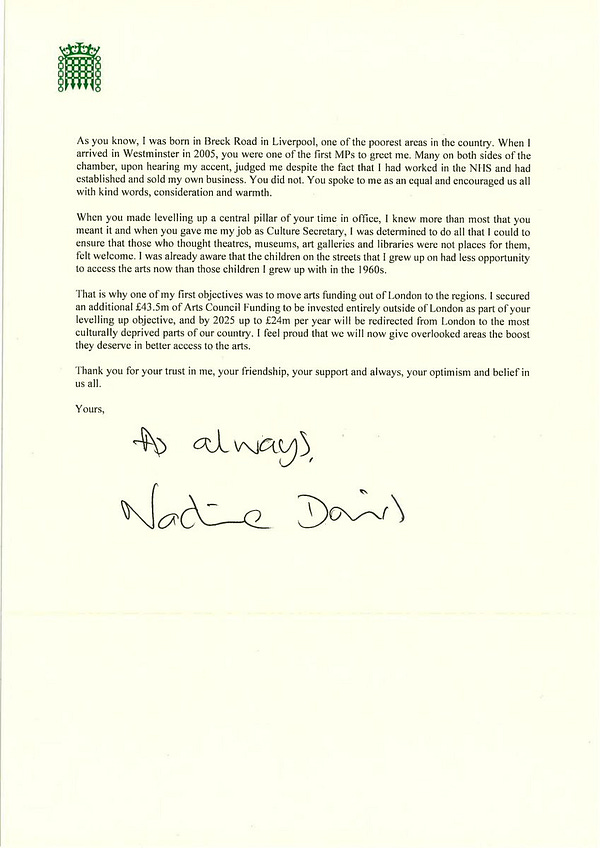 As you know, I was born in Breck Road in Liverpool, one of the poorest areas in the country. When I
arrived in Westminster in 2005, you were one of the first MPs to greet me. Many on both sides of the
chamber, upon hearing my accent, judged me despite the fact that I had worked in the NHS and had
established and sold my own business. You did not. You spoke to me as an equal and encouraged us all
with kind words, consideration and warmth.
When you made levelling up a central pillar of your time in office, I knew more than most that you
meant it and when you gave me my job as Culture Secretary, I was determined to do all that I could to
ensure that those who thought theatres, museums, art galleries and libraries were not places for them,
felt welcome. I was already aware that the children on the streets that I grew up on had less opportunity
to access the arts now than those children I grew up with in the 1960s.
That is why one of my first objectives was to move arts funding out of London to the regions. I secured
an additional £43.5m of Arts Council Funding to be invested entirely outside of London as part of your
levelling up objective, and by 2025 up to £24m per year will be redirected from London to the most
culturally deprived parts of our country. I feel proud that we will now give overlooked areas the boost
they deserve in better access to the arts.
Thank you for your trust in me, your friendship, your support and always, your optimism and belief in
us all.
Yours,
As always,
Nadine Dorries